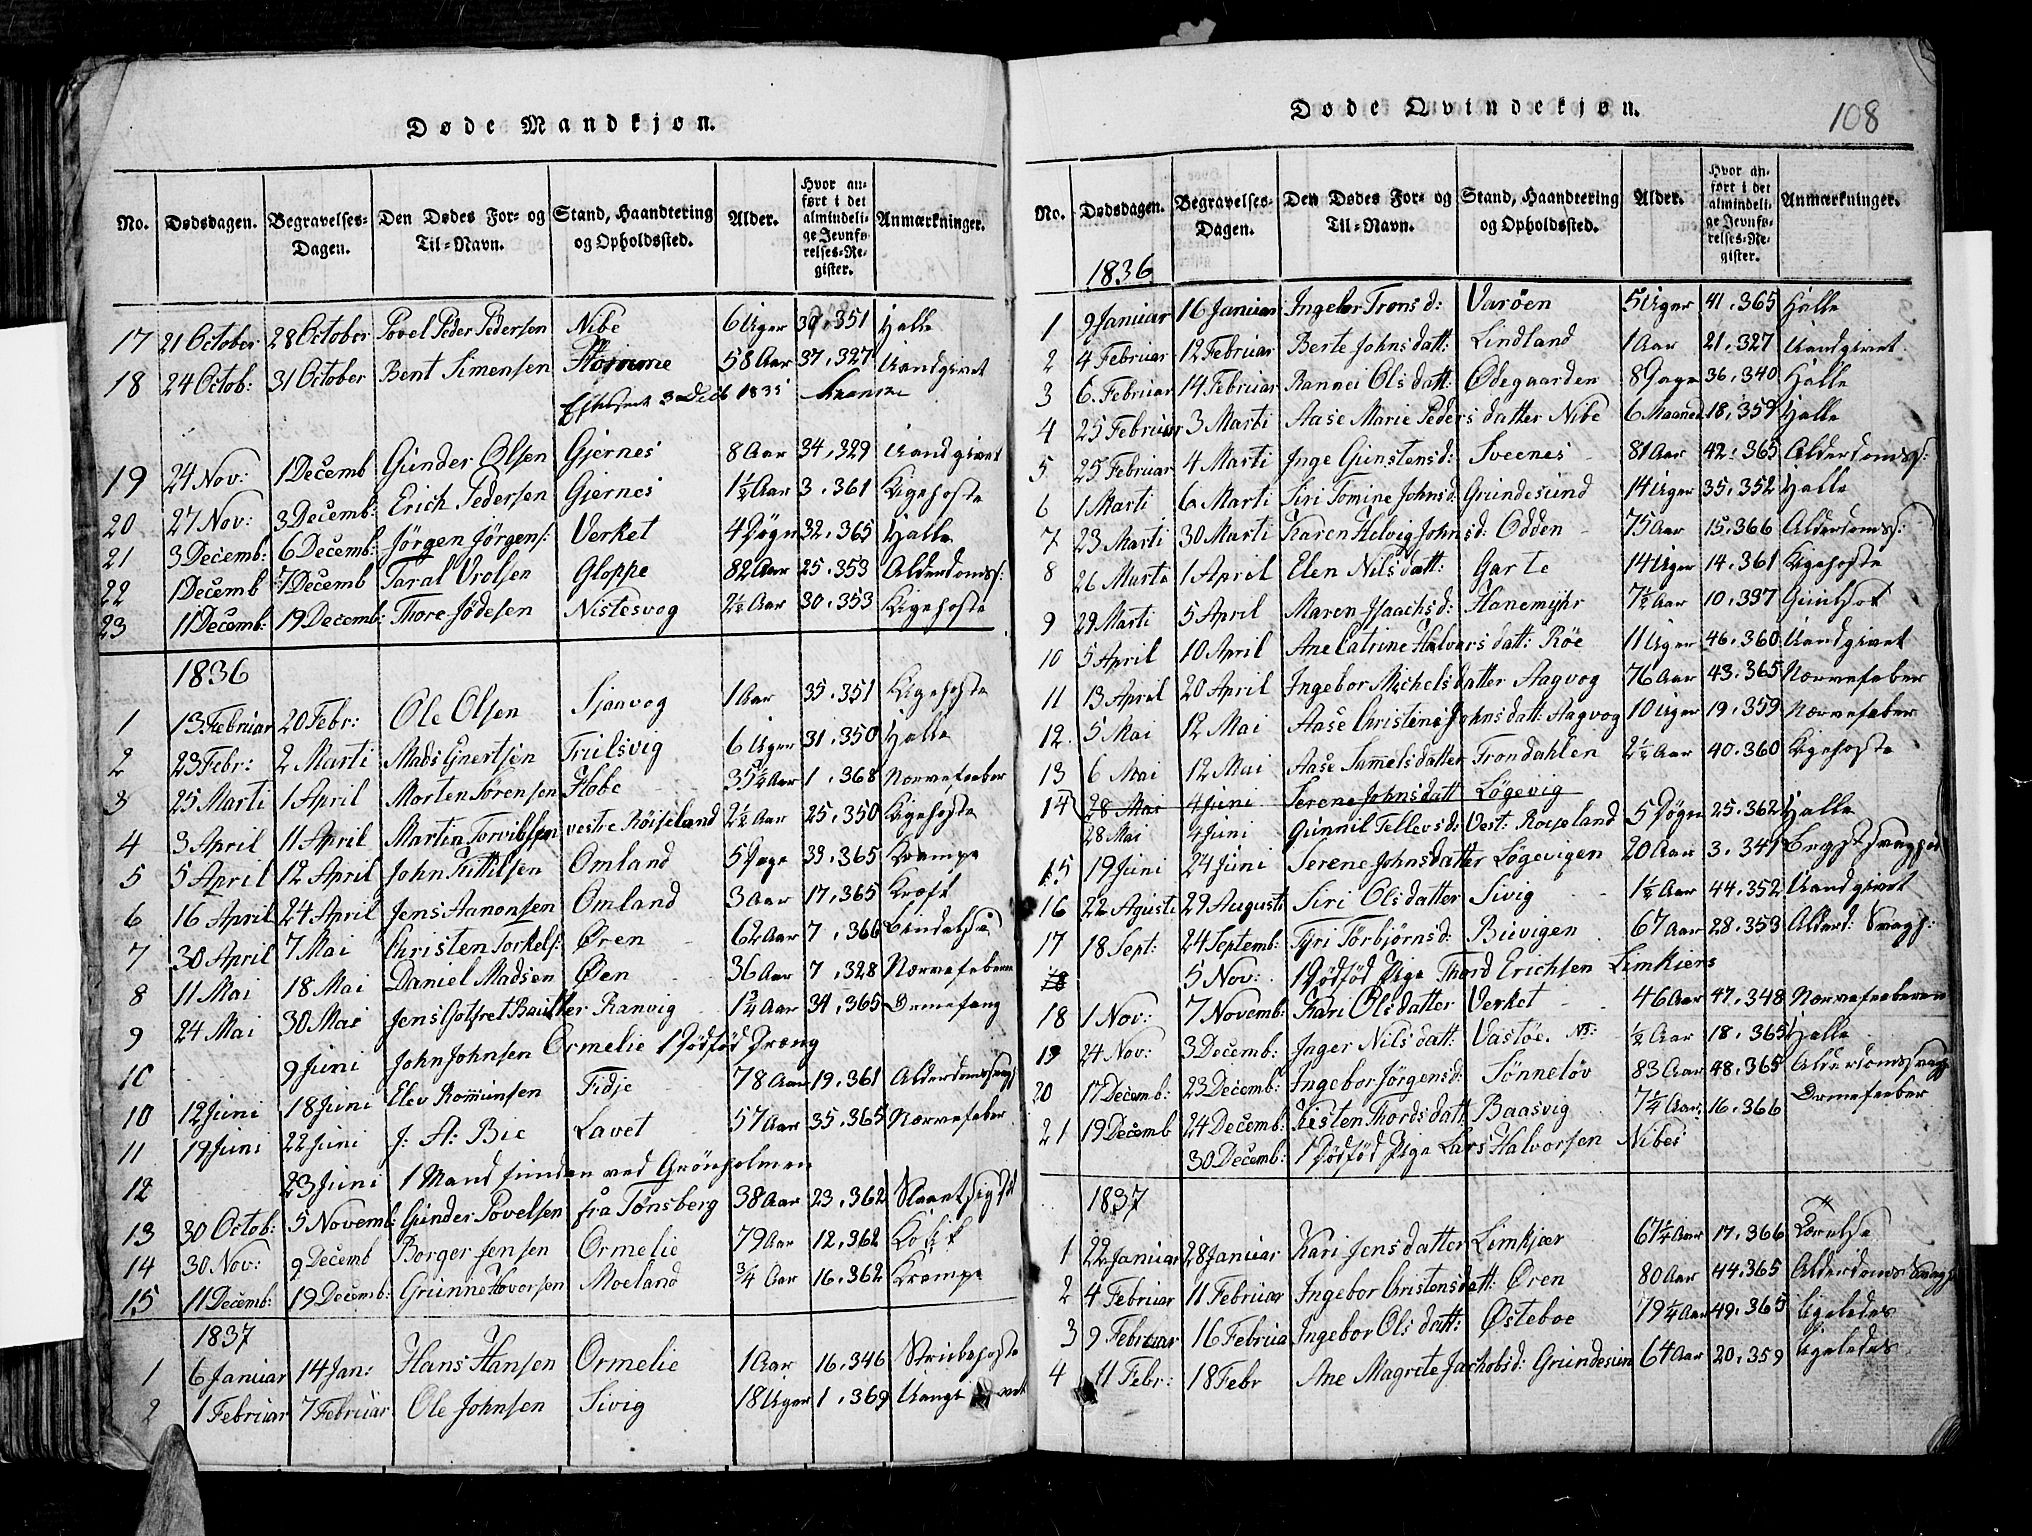 Døde Mandkjøn.
No. Dødsdagen. Begravelses-Dagen. Den Dødes For- og Til-Navn. Stand, Haandtering og Opholdssted. Alder. Hvor anført i det almindelige Jevnførelses-Register. Anmærkninger.
17 21 October 28 October Povel Peder Pedersen Nibe 6 Uger 39, 351 Halle
18 24 Octob: 31 October Bent Simensen 58 Aar 37, 327 Uandgivet
19 24 Nov: 1 Decemb Gunder Olsen Gjernes 8 Aar 34, 329 Uandgivet
20 27 Nov: 3 Decemb: Erich Pedersen Gjernes 1½ Aar 3, 361 Kigehoste
21 3 Decemb: 6 Decemb: Jørgen Jørgens: Verket 4 Døgn 32, 365 Halle
22 1 Decemb 7 Decemb Taral Vrolsen Gloppe 82 Aar 25, 353 Alderdomss:
23 11 Decemb: 19 Decemb: Thore Jødesen Nistesvog 2½ Aar 30, 353 Kigehoste
1836
1 13 Februar 20 Febr: Ole Olsen Sjanvog 1 Aar 35, 351 Kigehoste
2 23 Febr: 2 Marti Mads Gnertsen Trulsvig 6 Uger 31, 350 Halle
3 25 Marti 1 April Morten Sørensen Flobe 35¼ Aar 1, 368 Nervefeeber
4 3 April 11 April Martin Torvildsen vestre Röiseland 2½ Aar 25, 350 Kigehoste
5 5 April 12 April John Kittilsen Omland 5 Dage 39, 365 Krampe
6 16 April 24 April Jens Aanonsen Omland 3 Aar 17, 365 Kræft
7 30 April 7 Mai Christen Torkels: Øren 62 Aar 7, 366
8 11 Mai 18 Mai Daniel Madsen Øen 36 Aar 7, 328 Nervefeberen
9 24 Mai 30 Mai Jens Gotfret Ranvig 1¾ Aar 34, 365 Ormefang
10 9 Juni John Johnsen Ormelie 1 Dödföd Dræng
10 12 Juni 18 Juni Elev Romunsen Fidje 78 Aar 19, 361 Alderdomssvagh
11 19 Juni 22 Juni J: A: Bie Lavet 57 Aar 35, 365 Nervefeber
12 23 Juni 1 Mand funden ved Grönholmen
13 30 Octob: 5 Novemb: Gunder Povelsen frå Tønsberg 38 Aar 23, 362
14 30 Nov: 9 Decemb Borger Jensen Ormelie 79 Aar 12, 362
15 11 Decemb: 19 Decemb: Grunne Hovorsen Moeland ¾ Aar 16, 362 Krampe
1837
1 6 Januar 14 Jan: Hans Hansen Ormelie 1 Aar 16, 346 Strubehoste
2 1 Februar 7 Februar Ole Johnsen Sivig 18 Uger 1, 369
Døde Qvindekjøn.
108
No. Dødsdagen. Begravelses-Dagen. Den Dødes For- og Til-Navn. Stand, Haandtering og Opholdssted. Alder. Hvor anført i det almindelige Jevnførelses-Register. Anmærkninger.
1836
1 9 Januar 16 Januar Ingebor Trons d: Varöen 5 Uger 41, 365 Halle
2 4 Februar 12 Februar Berte Johns datt: Lindland 1 Aar 21, 327 Uandgivet
3 6. Februar 14 Februar Rannei Ols datt: Ödegaarden 8 Dage 36, 340 Halle
4 25 Februar 3 Marti Aase Marie Peders datter Nibe 6 Maaned 18, 359 Halle
5 25 Februar 4 Marti Inge Gunstens d: Sveenes 81 Aar 42, 365 Alderdomss:
6 1 Marti 6 Marti Siri Tomine Johns d: Grundesund 14 Uger 35, 352 Halle
7 23 Marti 30 Marti Karen Helvig Johns d: Odden 75 Aar 15, 366 Alderdomss:
8 26 Marti 1 April Elen Nils datt: Garte 14 Uger 14, 361 Kigehoste
9 29 Marti 5 April Maren Isaachs d: Hanemyhr 7½ Aar 10, 337 Gulsot
10 5 April 10 April Ane Catrine Halvors datt: Röe 11 Uger 46, 360 Uandgivet
11 13 April 20 April Ingebor Michels datter Aagvog 76 Aar 43, 365 Nervefeber
12. 5 Mai 12 Mai Aase Christine Johns datt: Aagvog 10 Uger 19, 359 Nervefeber
13 6 Mai 12 Mai Aase Samels datter Trondahlen 2½ Aar 40, 360 Kigehoste
14 28 Mai 4 Juni Serene Johnsdatt Lögevig
28 Mai 4 Juni Gunnil Tellevs d: Vest: Roiseland 5 Døgn 25, 362 Halle
15 19 Juni 24 Juni Serene Johns datter Lögevigen 20 Aar 3, 341
16 22 Agusti 29 Augusti Siri Ols datter Sivig 1½ Aar 44, 352 Uandgivet
17 18 Sept: 24 Septemb: Tyri Törbjörns d: Buvigen 67 Aar 28, 353 Alderd: Svagh:
18 5 Nov: 1 Dödföd Pige Thord Erichsen Limkiers
18 1 Nov: 7 Novemb: Kari Ols datter Verket 46 Aar 47, 348 Nervefeeberen
19 24 Nov: 3 Decemb: Inger Nils datt: Vastöe. NB: ½ Aar 18, 365 Halle
20 17 Decemb: 23 Decemb: Ingebor Jörgens d: Sönnelöv 83 Aar 48, 365 Alderdomssvagh
21 19 Decemb 24 Decemb: Kisten Thords datt Baasvig 7¼ Aar 16, 366 Ormefeeber
30 Decemb: 1 Dödföd Pige Lars Halvorsen Nibes
1837
1 22 Januar 28 Januar Kari Jens datter Limkjær 67¼ Aar 17, 366
2 4 Februar 11 Februar Ingebor Christens datt: Øren 80 Aar 44, 365 Alderdoms Svagh
3 9 Februar 16 Februa Ingebor Ols datt: Østeboe 79¼ Aar 49, 365 Ligeledes
4 11 Febr: 18 Febr Ane Magrete Jachobs d: Grundesun 64 Aar 20, 359 Ligeledes